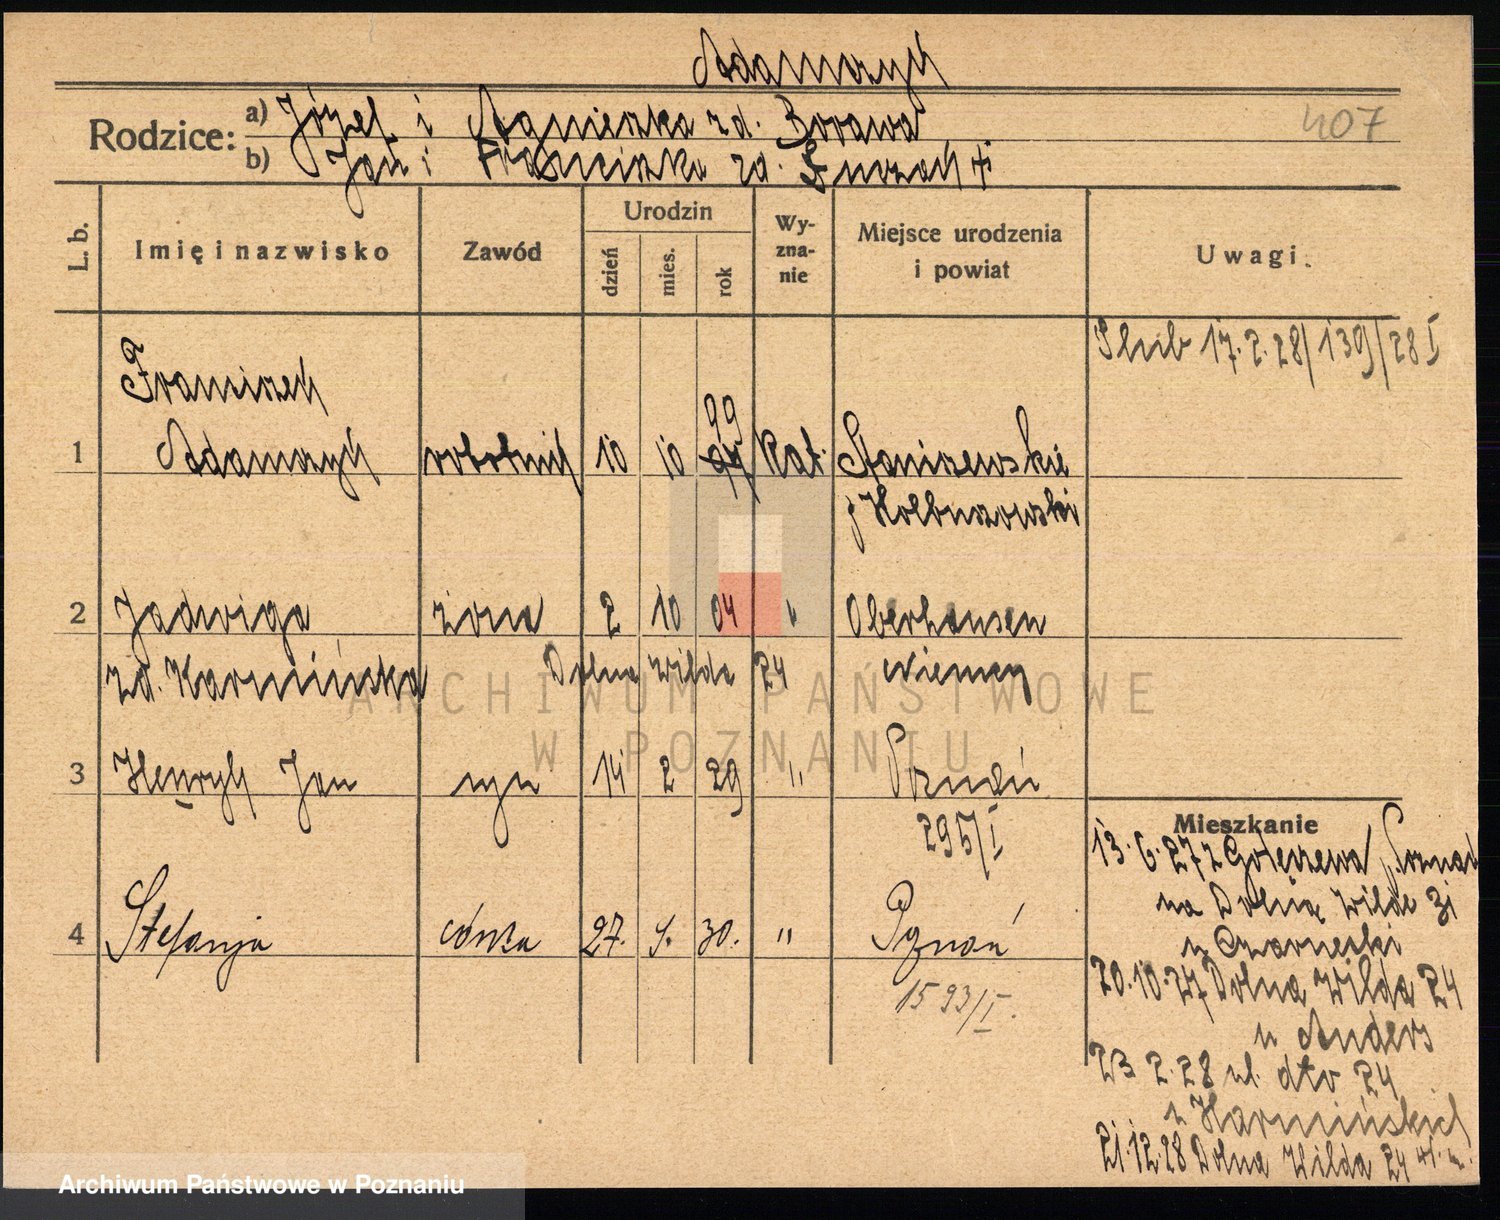 Adamczyk
407
Rodzice:
a) Józef i Agnieszka zd.
b) Jan i Franciszka zd.
L. b.
Imię i nazwisko
Zawód
Urodzin
dzień
mies.
rok
Wy-
zna-
nie
Miejsce urodzenia
i powiat
Uwagi.
Ślub 17.2.28/139/28 I
Franciszek
99
1 Adamczyk robotnik 10 10 97 kat. Staniszewskie
p Kolbuszowski
2 Jadwiga żona 2 10 04 " Oberhausen
zd. Karmińska Dolna Wilda 24 Niemcy
3 Henryk Jan syn 14 2 29 " Poznań
295/I
4 Stefanja córka 27. 9. 30. " Poznań
1593/I.
Mieszkanie
13.6.27 z Golęczewa p. Poznań
na Dolną Wildę 31
u Czarnecki
20.10.27 Dolna Wilda 24
u Anders
23 2.28 ul. dto 24
u Karmińskich
21.12.28 Dolna Wilda 24
ARCHIWUM PAŃSTWOWE
W POZNANIU
Archiwum Państwowe w Poznaniu